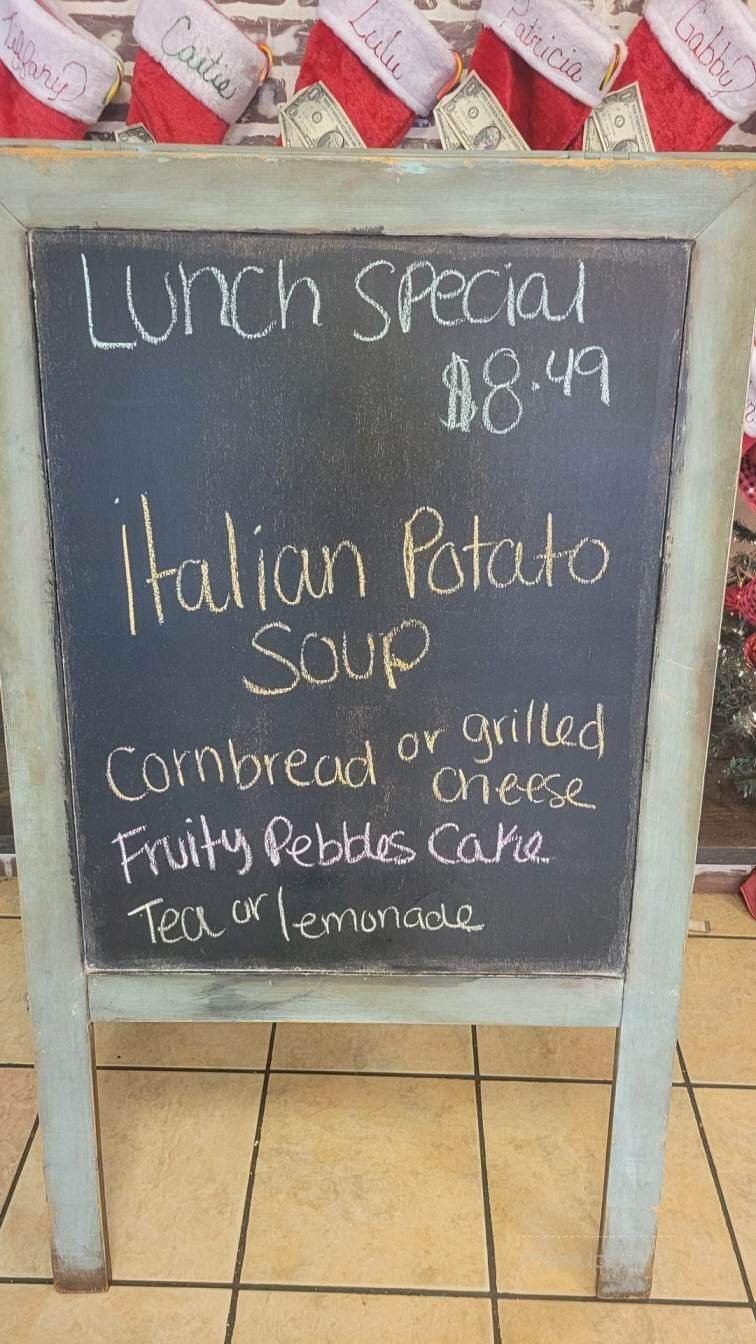 Tiffany
Caitie
Lulu
Patricia
Gabby
Lunch Special
$8.49
Italian Potato
Soup
Cornbread or grilled
cheese
Fruity Pebbles Cake
Tea or lemonade